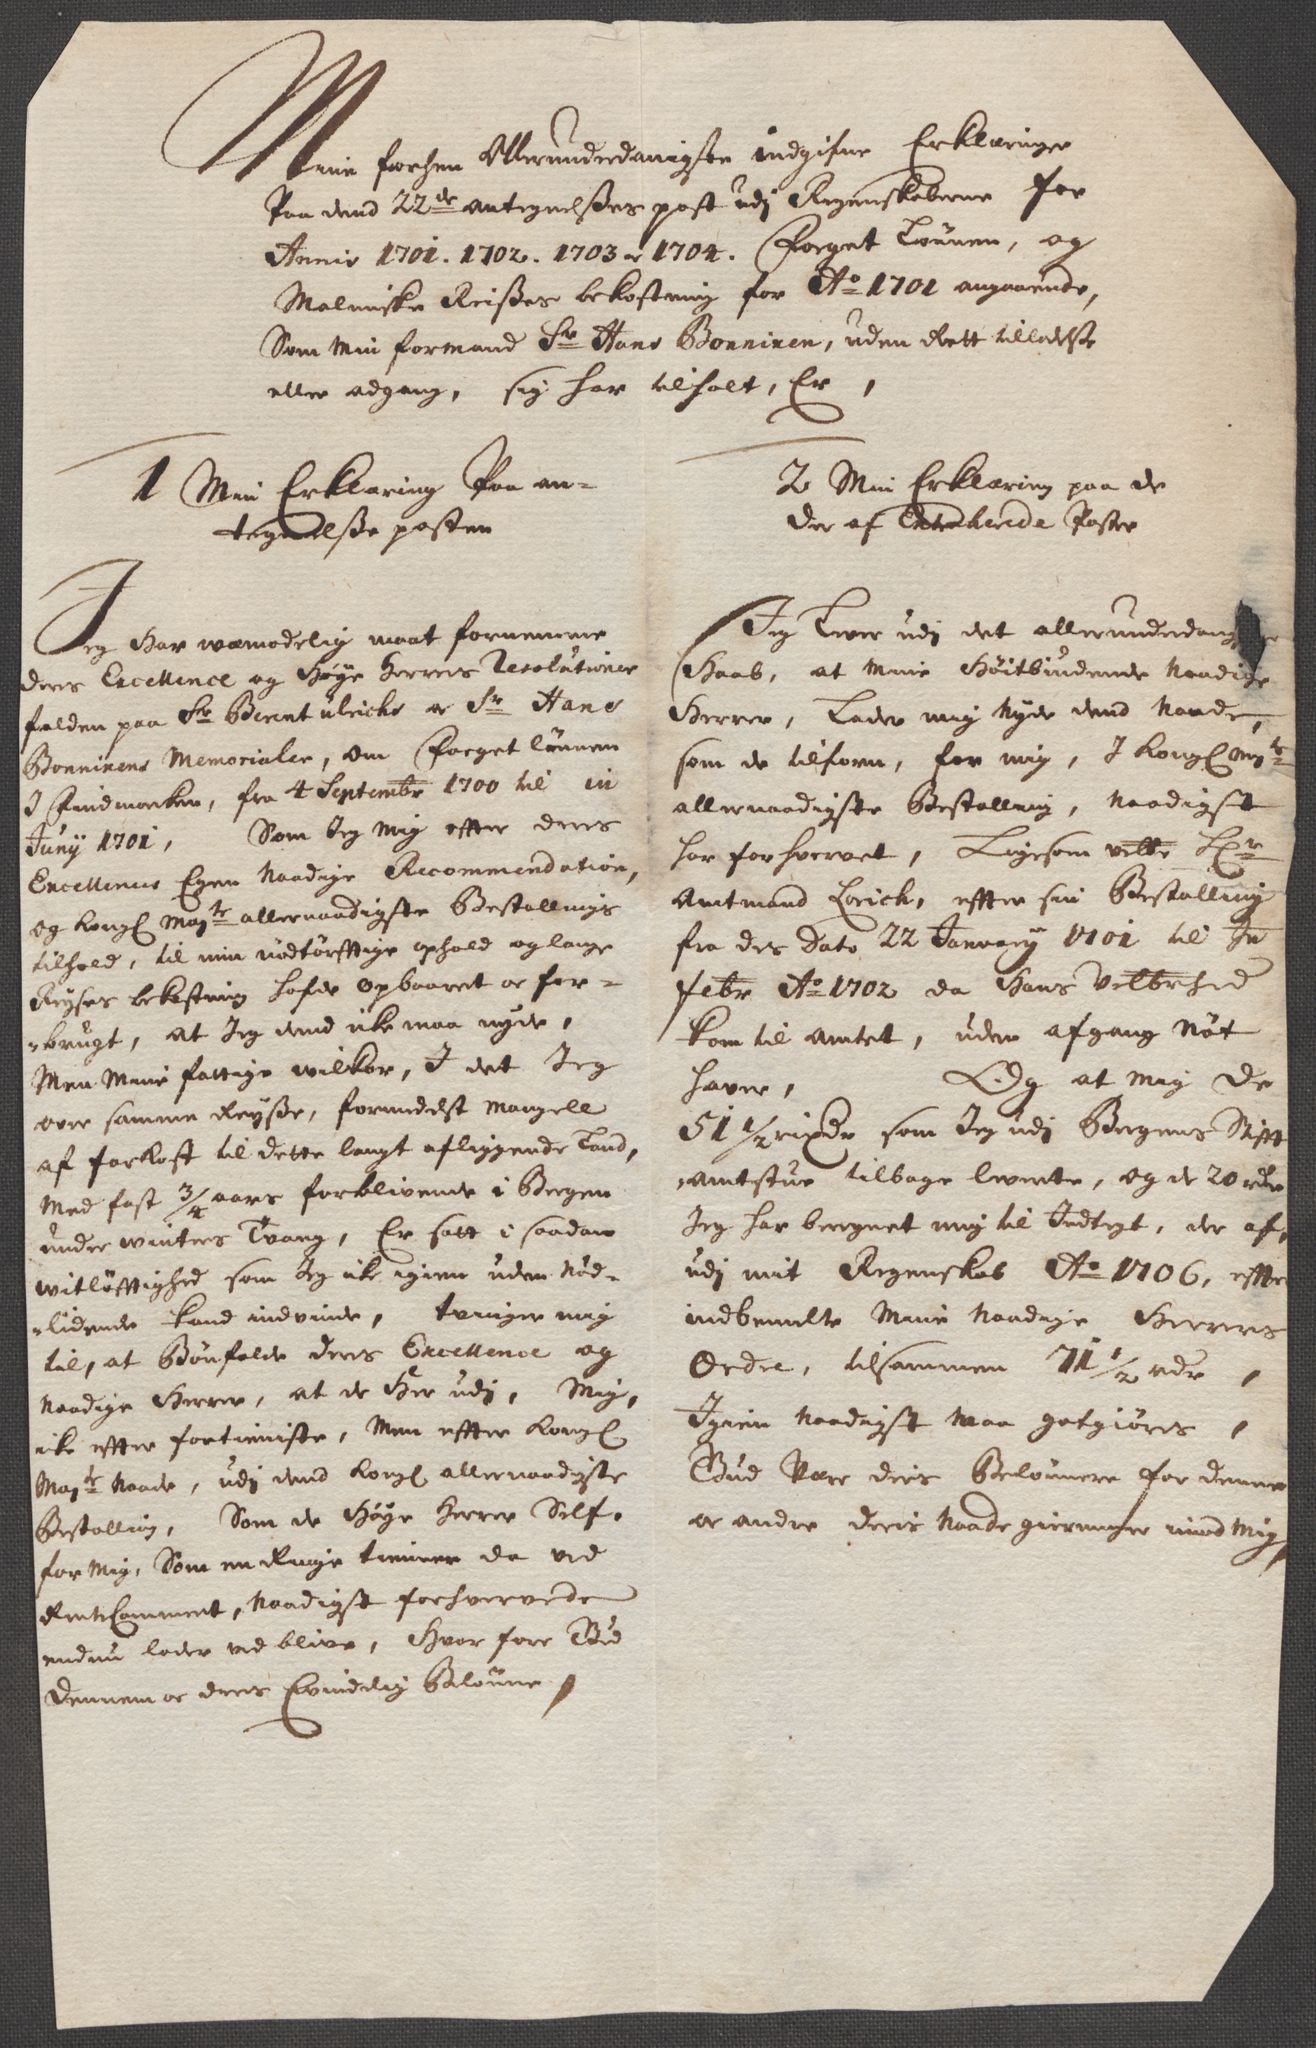 Mine forhen Allerunderdanigste indgifne Erklæringer
Paa dend 22de antegnelsses post udj Regenskaberne for
Annis 1701. 1702. 1703 or 1704. Foeget Lønnen, og
Malmiske Reisses bekostning for Ao 1701 angaaende,
Som Min formand Sr Hans Bonninen, uden Rett tilladelse
eller adgang, sig har tilholt, Er,
1 Min Erklæring Paa an=
tegnelsse posten
Jeg Har wemodelig maat fornemme
deres Excellence og Høye Herrers Resolutioner
falden paa Sr Berent ulrichs or Sr Hans
Bonninens Memorialer, om Foeget lønnen
I Findmarken, fra 4 Septembr 1700 til in
Juny 1701, Som Jeg Mig effter deres
Excellences Egen Naadige Recommendation,
og Kongl Mayts allernaadigste Bestallings
tilhold, til min nødtørfftige ophold og lange
Reyses bekostning hafde opbaaret or for=
=brugt, at Jeg dend icke maa nyde,
Men Mine fattige wilkor, I det Jeg
over samme Reysse, formedelst Mangell
af forkost til dette langt afliggende Land,
Med fast 3/4 aars forblivende i Bergen
under winters Tvang, Er satt i saadan
witløfftighed som Jeg icke igien uden Nød=
=lidende kand indvinde, tvinger mig
til, at Bønfalde deres Excellence og
Naadige Herrer, at de Her udj, Mig,
icke effter fortieniste, Men effter Kongl
Mayts Naade, udj dend Kongl allernaadigste
Bestalling, Som de Høye Herrer Self,
for Mig, Som en Ringe tienner da ved
RenteCammeret, Naadigst forhvervede
endnu lader ved blive, Hvor fore Gud
dennem or deres Evindelig Belønne,
2 Min Erklæring paa de
der af Poster
Jeg Lever udj det allerunderdanigste
Haab, at Mine Høitbiudende Naadige
Herrer, Lader mig Nyde dend Naade,
som de tilforn, for mig, I Kongl Mayts
allernaadigste Bestalling, Naadigst
har forhvervet, Ligesom velbr Hr
Amtmand Lorich, effter sin Bestalling
fra des Dato 22 January 1701 til In
Febr Ao 1702 da Hans Velbrhed
kom til amtet, uden afgang Nøt
haver, Og at Mig de
51 1/2 rixdr som Jeg udj Bergens Stift
amtstue tilbage leverte, og de 20 rdr
Jeg har beregnet mig til Indtegt, der af,
udj mit Regenskab Ao 1706, effter
indbemelte Mine Naadige Herrers
Ordre, tilsammen 71 1/2 rdr,
Igien Naadigst Maa gotgiøres,
Gud Vere deres Belønnere for denne
or andre deres Naade gierninger imod Mig,